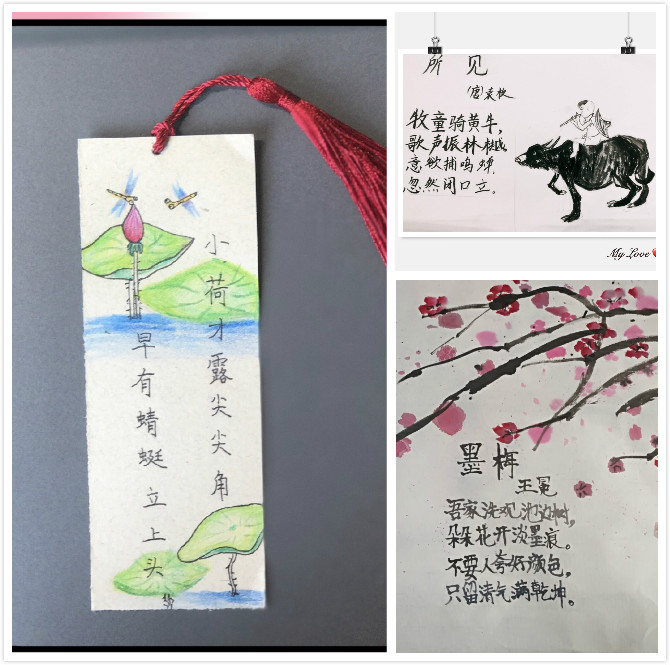 小荷才露尖尖角
早有蜻蜓立上头
所见
(唐)袁枚
牧童骑黄牛,
歌声振林樾
意欲捕鸣蝉
忽然闭口立。
My Love
墨梅
王冕
吾家洗砚池边树,
朵朵花开淡墨痕。
不要人夸好颜色,
只留清气满乾坤。